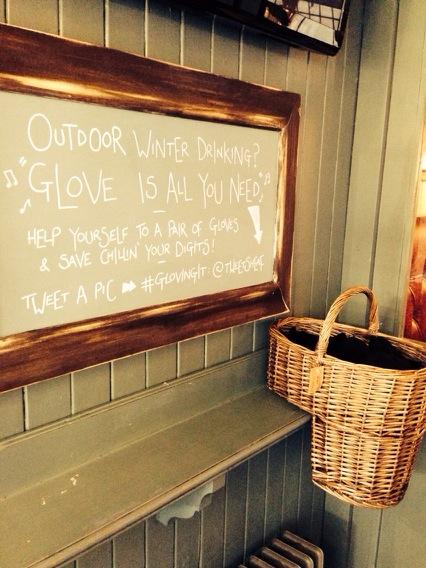 OUTDOOR WINTER DRINKING?
"GLOVE IS ALL YOU NEED"
HELP YOURSELF TO A PAIR OF GLOVES
& SAVE CHILLIN' YOUR DIGITS!
TWEET A PIC ➡ #GLOVINGIT: @TWEETSHEAF